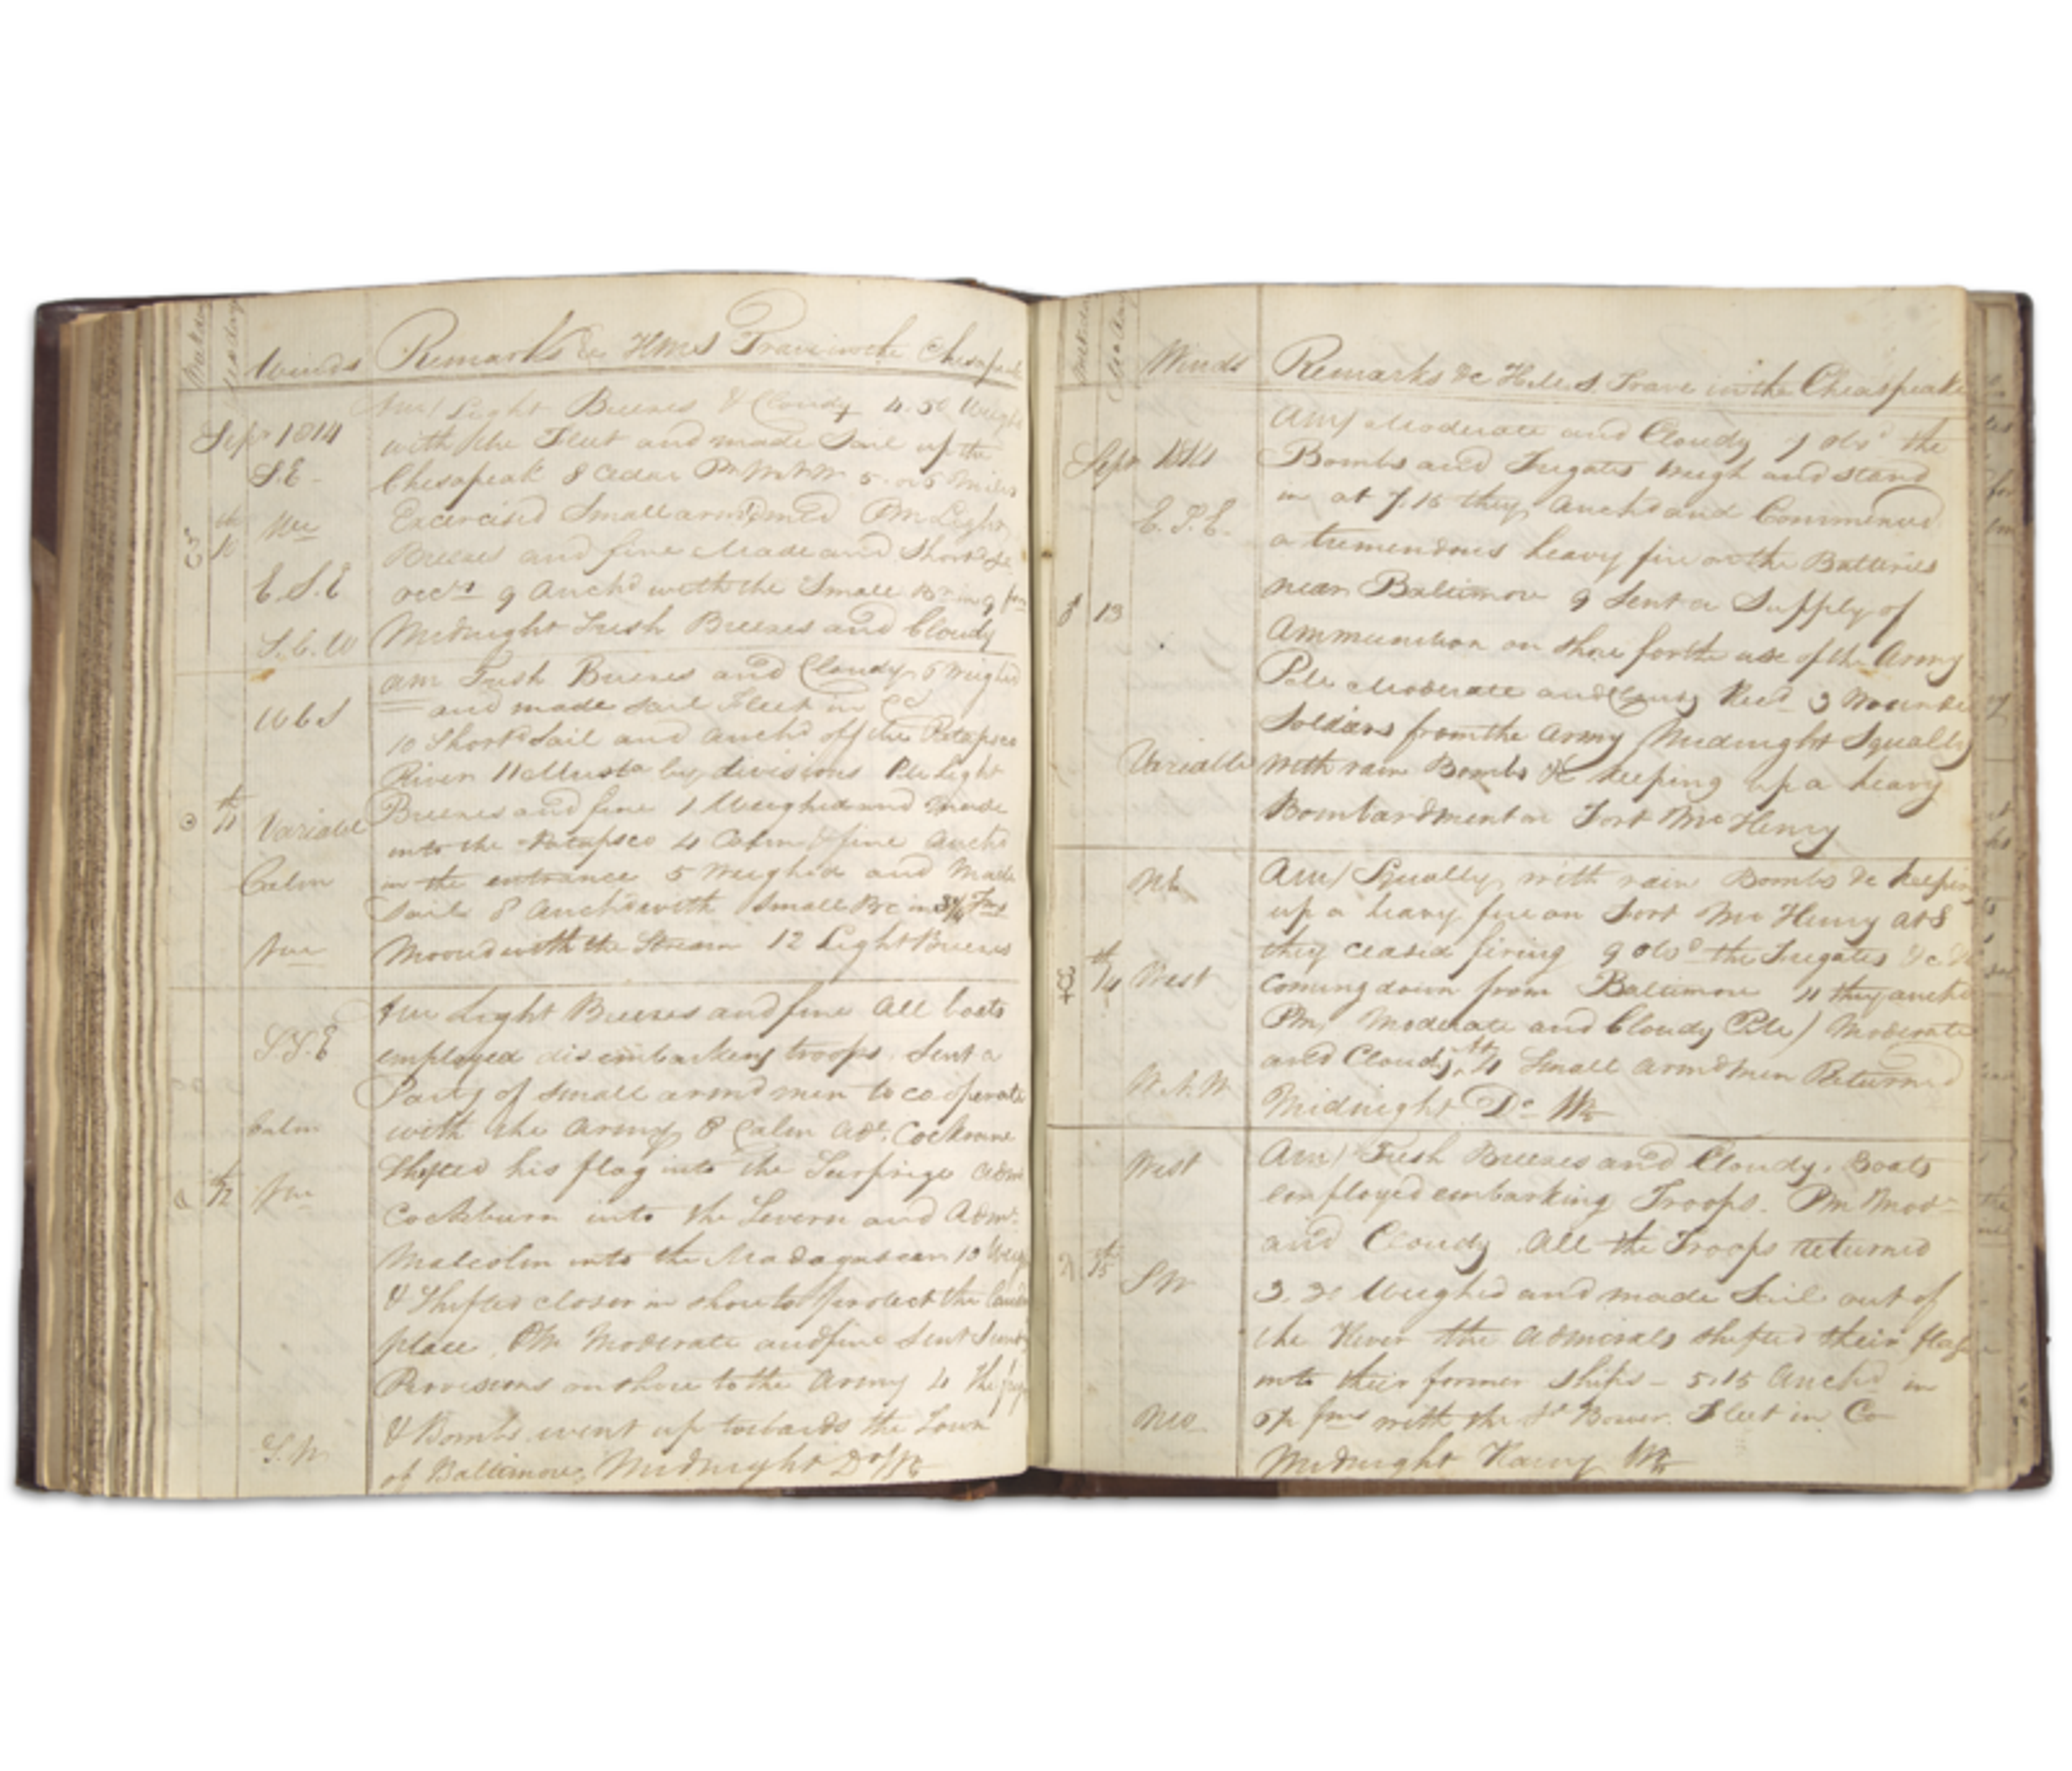 Winds Remarks &c HMS Trave in the Chesapeak
Sepr 1814
Am/ Light Breezes & Cloudy 4.50 Weighd
with the Fleet and made Sail up the
S.E
Chesapeak 8 Cedar Pt 5 or 5 Miles
Exercised Small armd men PM Light
th
10
Breezes and fine Made and Shortd Sl
E.S.E
occly 9 Anchd with the Small Br in 9 fms
S.b.W
Midnight Fresh Breezes and Cloudy
am Fresh Breezes and Cloudy 6 weighed
WbS
and made sail Fleet in Co
10 Shortd Sail and anchd off the Patapsco
River 11 Mustd by divisions PM Light
th
11
Variable
Breezes and fine 1 Weighed and made
into the Patapsco 4 Calm & fine Anchd
Calm
in the entrance 5 weighed and Made
Sail 8 Anchd with Small Br in 3¼ Fms
Moored with the Stream 12 Light Breezes
Am Light Breezes and fine All boats
S.S.E
employed disembarking troops. Sent a
Party of small armd men to co operate
Calm
with the Army 8 Calm Adl. Cockrane
th
12
Shifted his flag into the Surprize Adm
Cockburn into the Severn and Adml
Malcolm into the Madagascar 10 Weigd
& Shifted closer in shore to protect the landing
place. PM Moderate and fine Sent
Provisions on shore to the Army 4 The frigs
& Bombs went up towards the Town
S.W
of Baltimore, Midnight Do
Winds Remarks &c H.M.S Trave in the Cheaspeake
Sepr 1814
Am/ Moderate and Cloudy 7 Obsd the
Bombs and Frigates weigh and stand
E.S.E.
in at 7.15 they Anchd and Commenced
a tremendous heavy fire on the Batteries
♂ 13
near Baltimore 9 Sent a Supply of
Ammunition on shore for the use of the Army
PM Moderate and Cloudy Recd 3 Wounded
Soldiers from the Army Midnight Squally
Variable
with rain Bombs &c keeping up a heavy
Bombardment on Fort Mc Henry
NE
Am/ Squally with rain Bombs &c keeping
up a heavy fire on Fort Mc Henry at 8
they ceased firing 9 Obsd the Frigates &c &c
th
14
West
Coming down from Baltimore 11 they anchd
Pm, Moderate and Cloudy PM) Moderate
and Cloudy, at 4 Small armd men Returned
W.N.W
Midnight Do
West
Am/ Fresh Breezes and Cloudy. Boats
employed embarking Troops. Pm Modte
and Cloudy. All the Troops returned
th
15
SW
3.30 Weighed and made Sail out of
the River the Admirals shifted their flags
into their former ships - 5.15 Anchd in
fms with the St Bower. Fleet in Co
Midnight Hazy